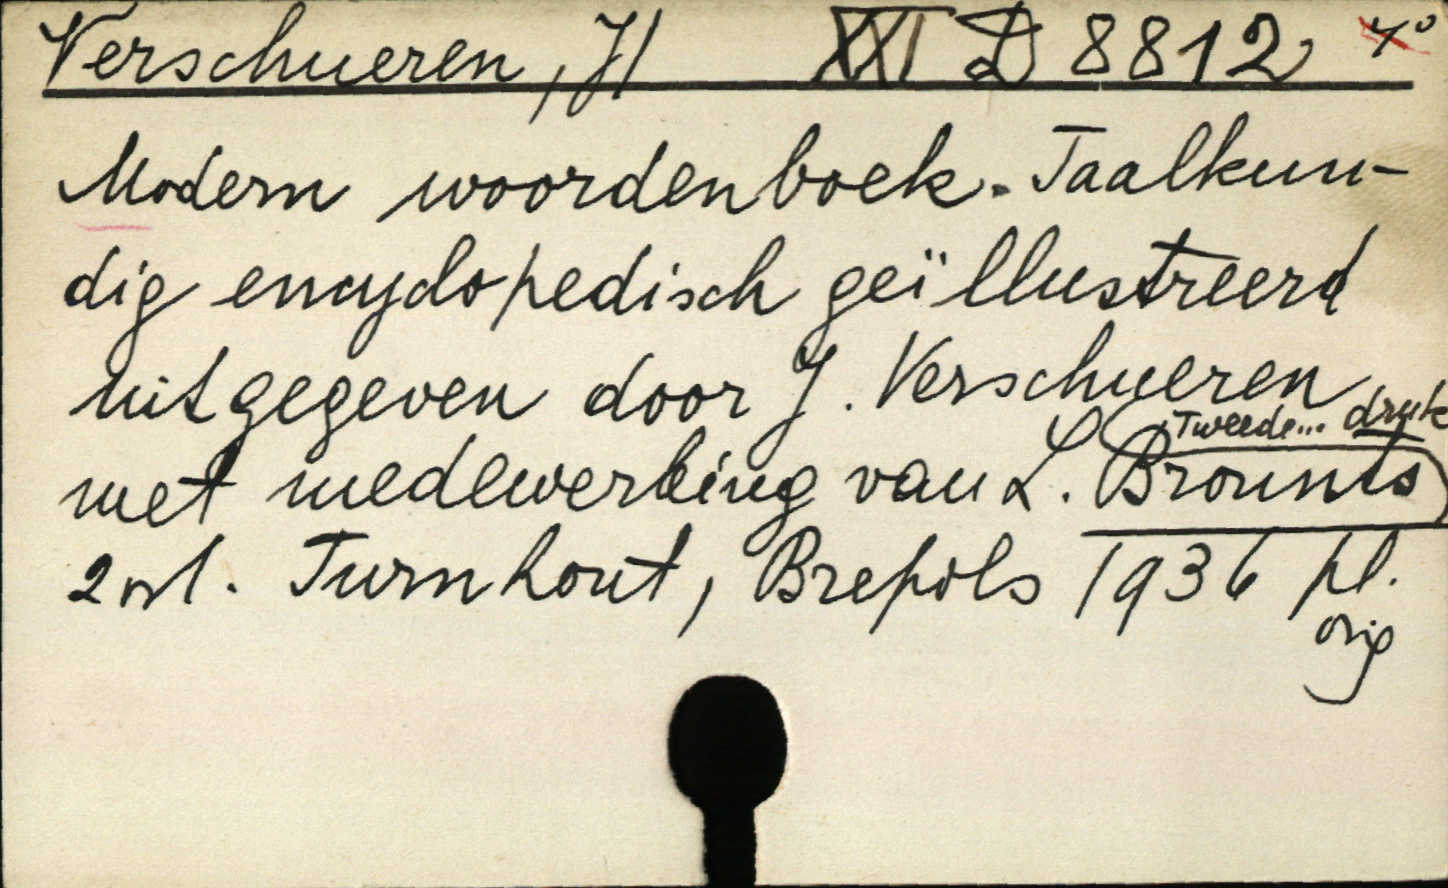 Verschueren, J/ XXI D 8812 4°
Modern woordenboek. Taalkun-
dig encyclopedisch geïllustreerd
uitgegeven door J. Verschueren
Tweede... druk
met medewerking van L. Brounts
2 vol. Turnhout, Brepols 1936 pl.
orig